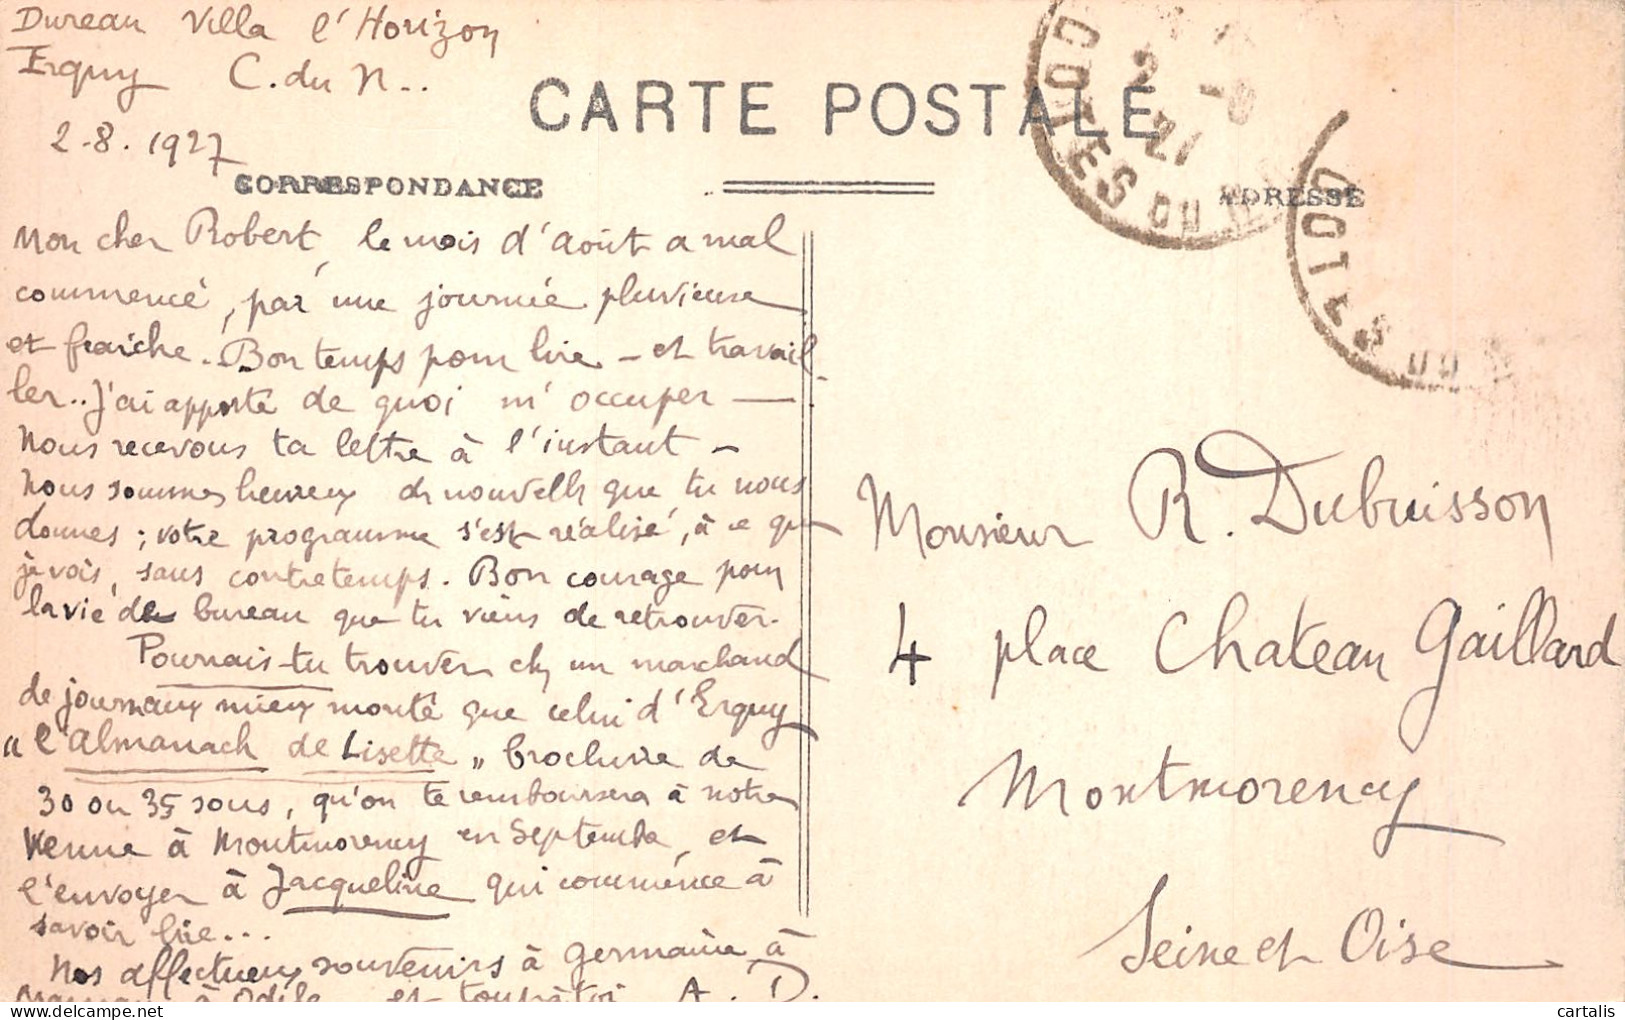 Dureau Villa l'Horizon
Erquy C. du N..
2-8. 1927
CARTE POSTALE
CORRESPONDANCE
ADRESSE
COTES DU
2 -8
27
COTES DU
Mon cher Robert, le mois d'Août a mal
commencé, par une journée pluvieuse
et fraîche. Bon temps pour lire – et travail-
ler.. J'ai apporté de quoi m'occuper —
Nous recevons ta lettre à l'instant –
Nous sommes heureux des nouvelles que tu nous
donnes ; votre programme s'est réalisé, à ce que
je vois, sans contretemps. Bon courage pour
la vie de bureau que tu viens de retrouver.
Pourrais-tu trouver chez un marchand
de journaux mieux monté que celui d'Erquy
"l'almanach de Lisette" brochure de
30 ou 35 sous, qu'on te remboursera à notre
venue à Montmorency en Septembre, et
l'envoyer à Jacqueline qui commence à
savoir lire...
Nos affectueux souvenirs à Germaine, à
Maman, à Odile et toujours à toi A. D.
Monsieur R. Dubuisson
4 place Chateau Gaillard
Montmorency
Seine et Oise
cartalis